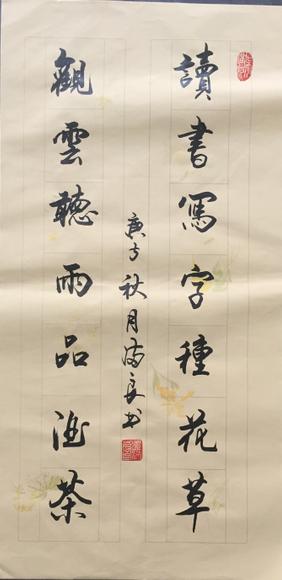 讀書寫字種花草
庚子秋月良书
觀雲聽雨品酒茶